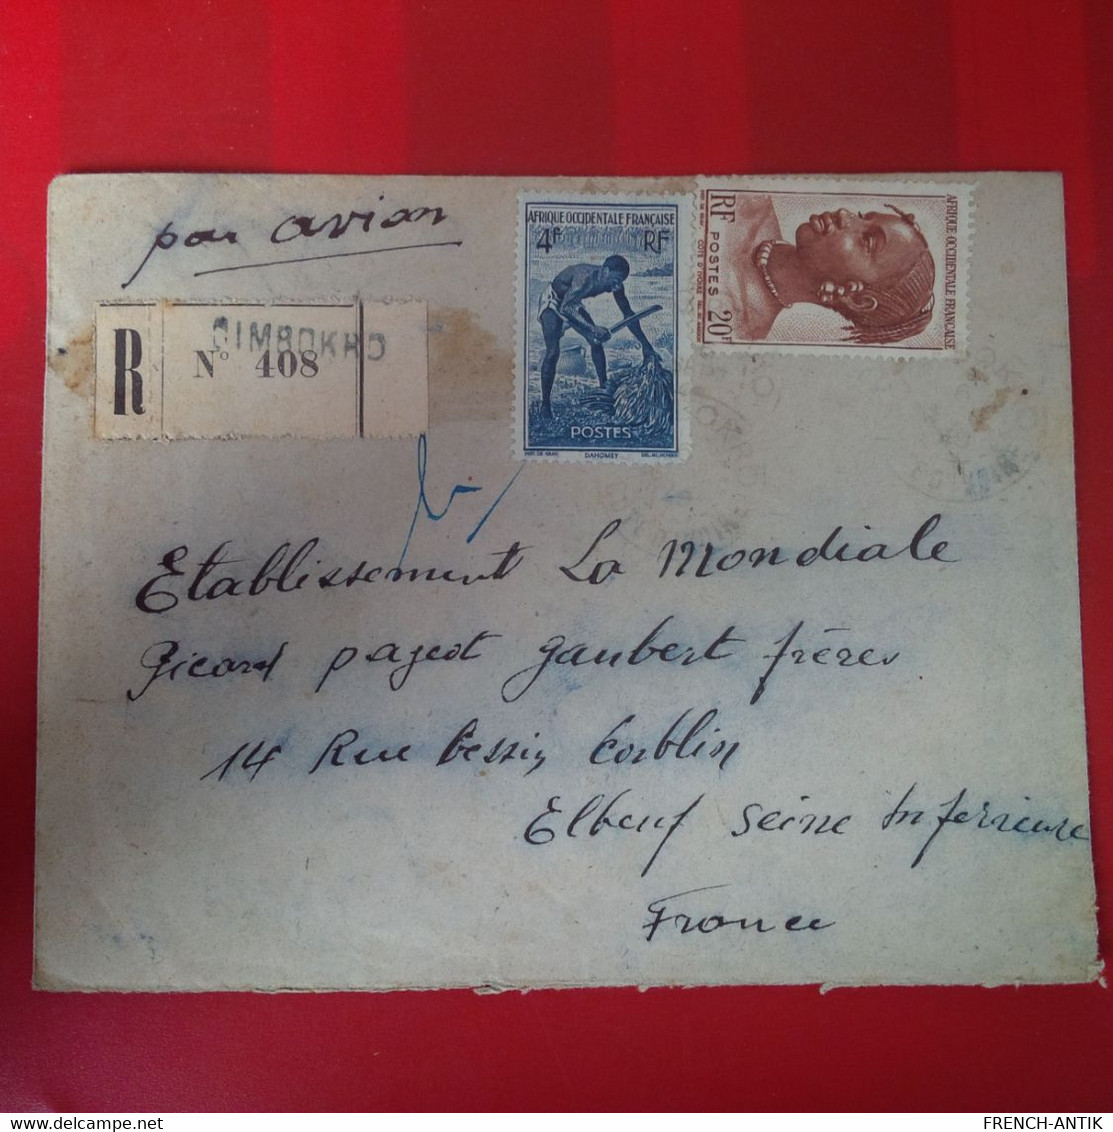 par avion
R
N° 408
DIMBOKRO
AFRIQUE OCCIDENTALE FRANÇAISE
4F RF
POSTES
DAHOMEY
AFRIQUE OCCIDENTALE FRANÇAISE
RF POSTES 20F
COTE D'IVOIRE
Etablissement La Mondiale
Picard pageot gaubert frères
14 Rue Bessin Corblin
Elbeuf Seine Inferieure
France
FRENCH-ANTIK